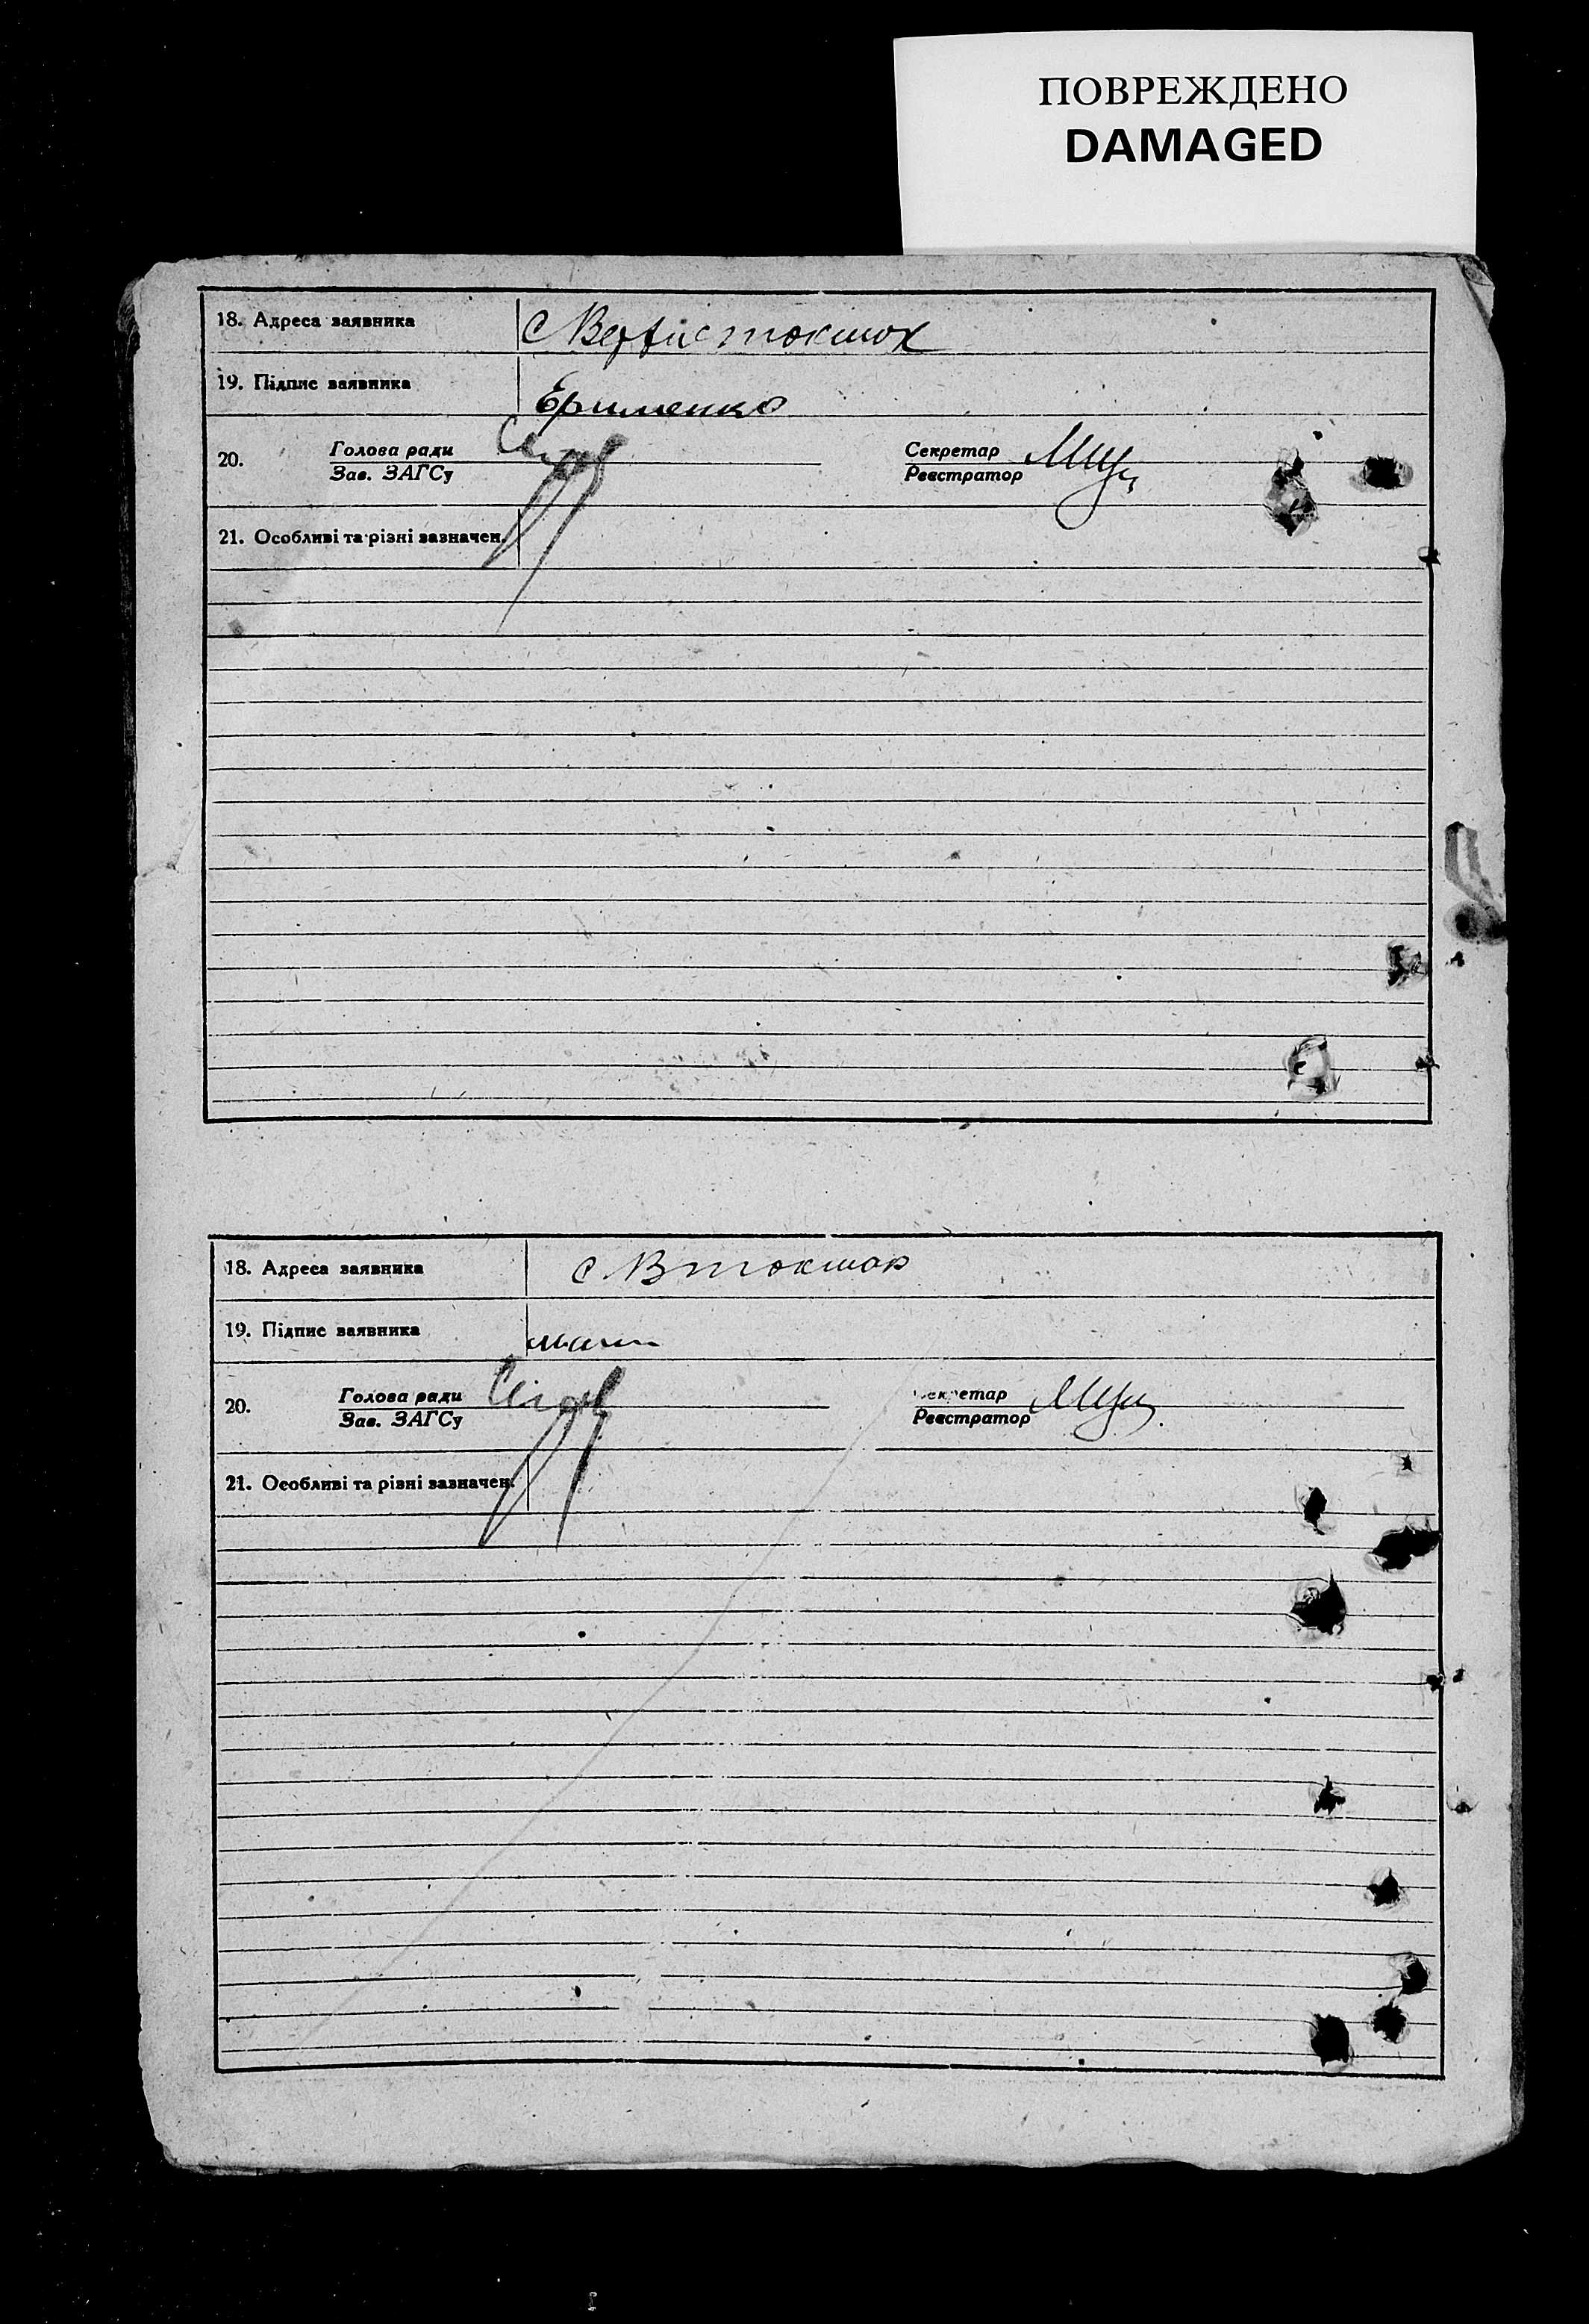 ПОВРЕЖДЕНО
DAMAGED
18. Адреса заявника
19. Підпис заявника
Єрименко
20. Голова ради
Зав. ЗАГСу
Секретар
Реєстратор
21. Особливі та різні зазначен.
18. Адреса заявника с В токмак
19. Підпис заявника
20. Голова ради
Зав. ЗАГСу
Секретар
Реєстратор
21. Особливі та різні зазначен.